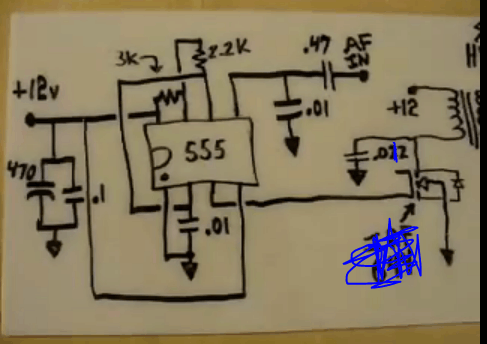 2.2K
3K
.47 AF
IN
+12v
.01
+12
555
470
.1
.01